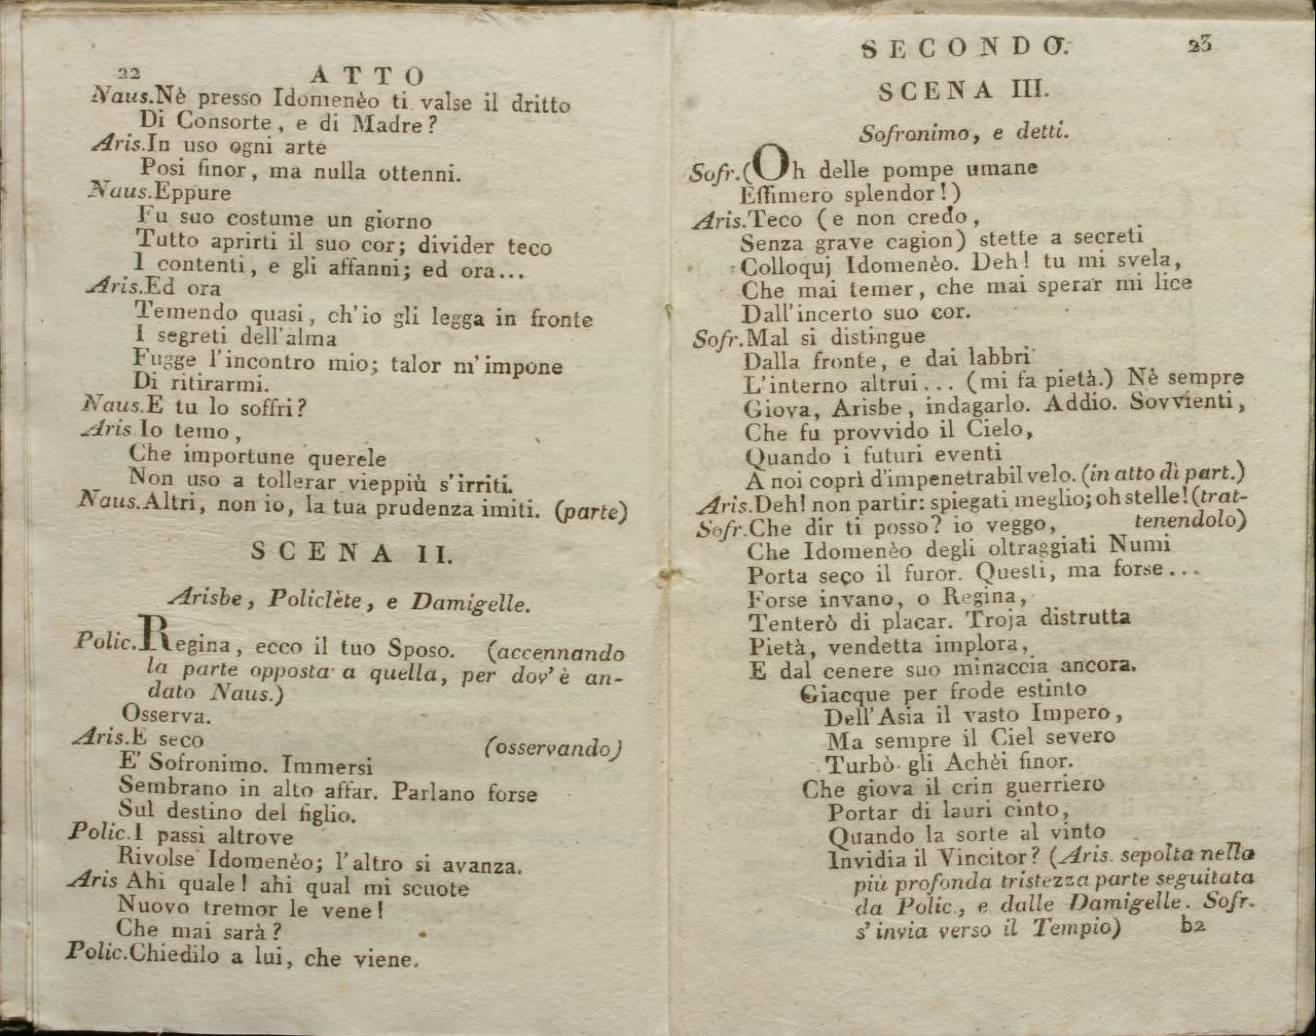 22 ATTO
Naus.Nè presso Idomenèo ti valse il dritto
Di Consorte, e di Madre?
Aris.In uso ogni arte
Posi finor, ma nulla ottenni.
Naus.Eppure
Fu suo costume un giorno
Tutto aprirti il suo cor; divider teco
I contenti, e gli affanni; ed ora...
Aris.Ed ora
Temendo quasi, ch'io gli legga in fronte
I segreti dell'alma
Fugge l'incontro mio; talor m'impone
Di ritirarmi.
Naus.E tu lo soffri?
Aris Io temo,
Che importune querele
Non uso a tollerar vieppiù s'irriti.
Naus.Altri, non io, la tua prudenza imiti. (parte)
SCENA II.
Arisbe, Policlète, e Damigelle.
Polic.Regina, ecco il tuo Sposo. (accennando
la parte opposta a quella, per dov'è an-
dato Naus.)
Osserva.
Aris.E seco (osservando)
E' Sofronimo. Immersi
Sembrano in alto affar. Parlano forse
Sul destino del figlio.
Polic.I passi altrove
Rivolse Idomenèo; l'altro si avanza.
Aris Ahi quale! ahi qual mi scuote
Nuovo tremor le vene!
Che mai sarà?
Polic.Chiedilo a lui, che viene.
SECONDO. 23
SCENA III.
Sofronimo, e detti.
Sofr.(Oh delle pompe umane
Effimero splendor!)
Aris.Teco (e non credo,
Senza grave cagion) stette a secreti
Colloquj Idomenèo. Deh! tu mi svela,
Che mai temer, che mai sperar mi lice
Dall'incerto suo cor.
Sofr.Mal si distingue
Dalla fronte, e dai labbri
L'interno altrui... (mi fa pietà.) Nè sempre
Giova, Arisbe, indagarlo. Addio. Sovvienti,
Che fu provvido il Cielo,
Quando i futuri eventi
A noi coprì d'impenetrabil velo. (in atto di part.)
Aris.Deh! non partir: spiegati meglio; oh stelle! (trat-
Sofr.Che dir ti posso? io veggo, tenendolo)
Che Idomenèo degli oltraggiati Numi
Porta seco il furor. Questi, ma forse...
Forse invano, o Regina,
Tenterò di placar. Troja distrutta
Pietà, vendetta implora,
E dal cenere suo minaccia ancora.
Giacque per frode estinto
Dell'Asia il vasto Impero,
Ma sempre il Ciel severo
Turbò gli Achèi finor.
Che giova il crin guerriero
Portar di lauri cinto,
Quando la sorte al vinto
Invidia il Vincitor? (Aris. sepolta nella
più profonda tristezza parte seguitata
da Polic., e dalle Damigelle. Sofr.
s'invia verso il Tempio) b2